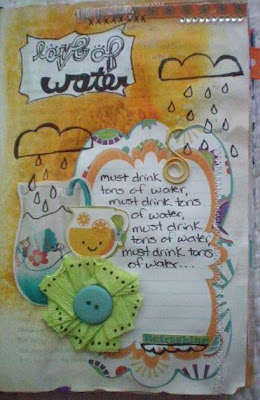 love of
water
must drink
tons of water,
must drink tons
of water,
must drink
tons of water,
must drink tons
of water...